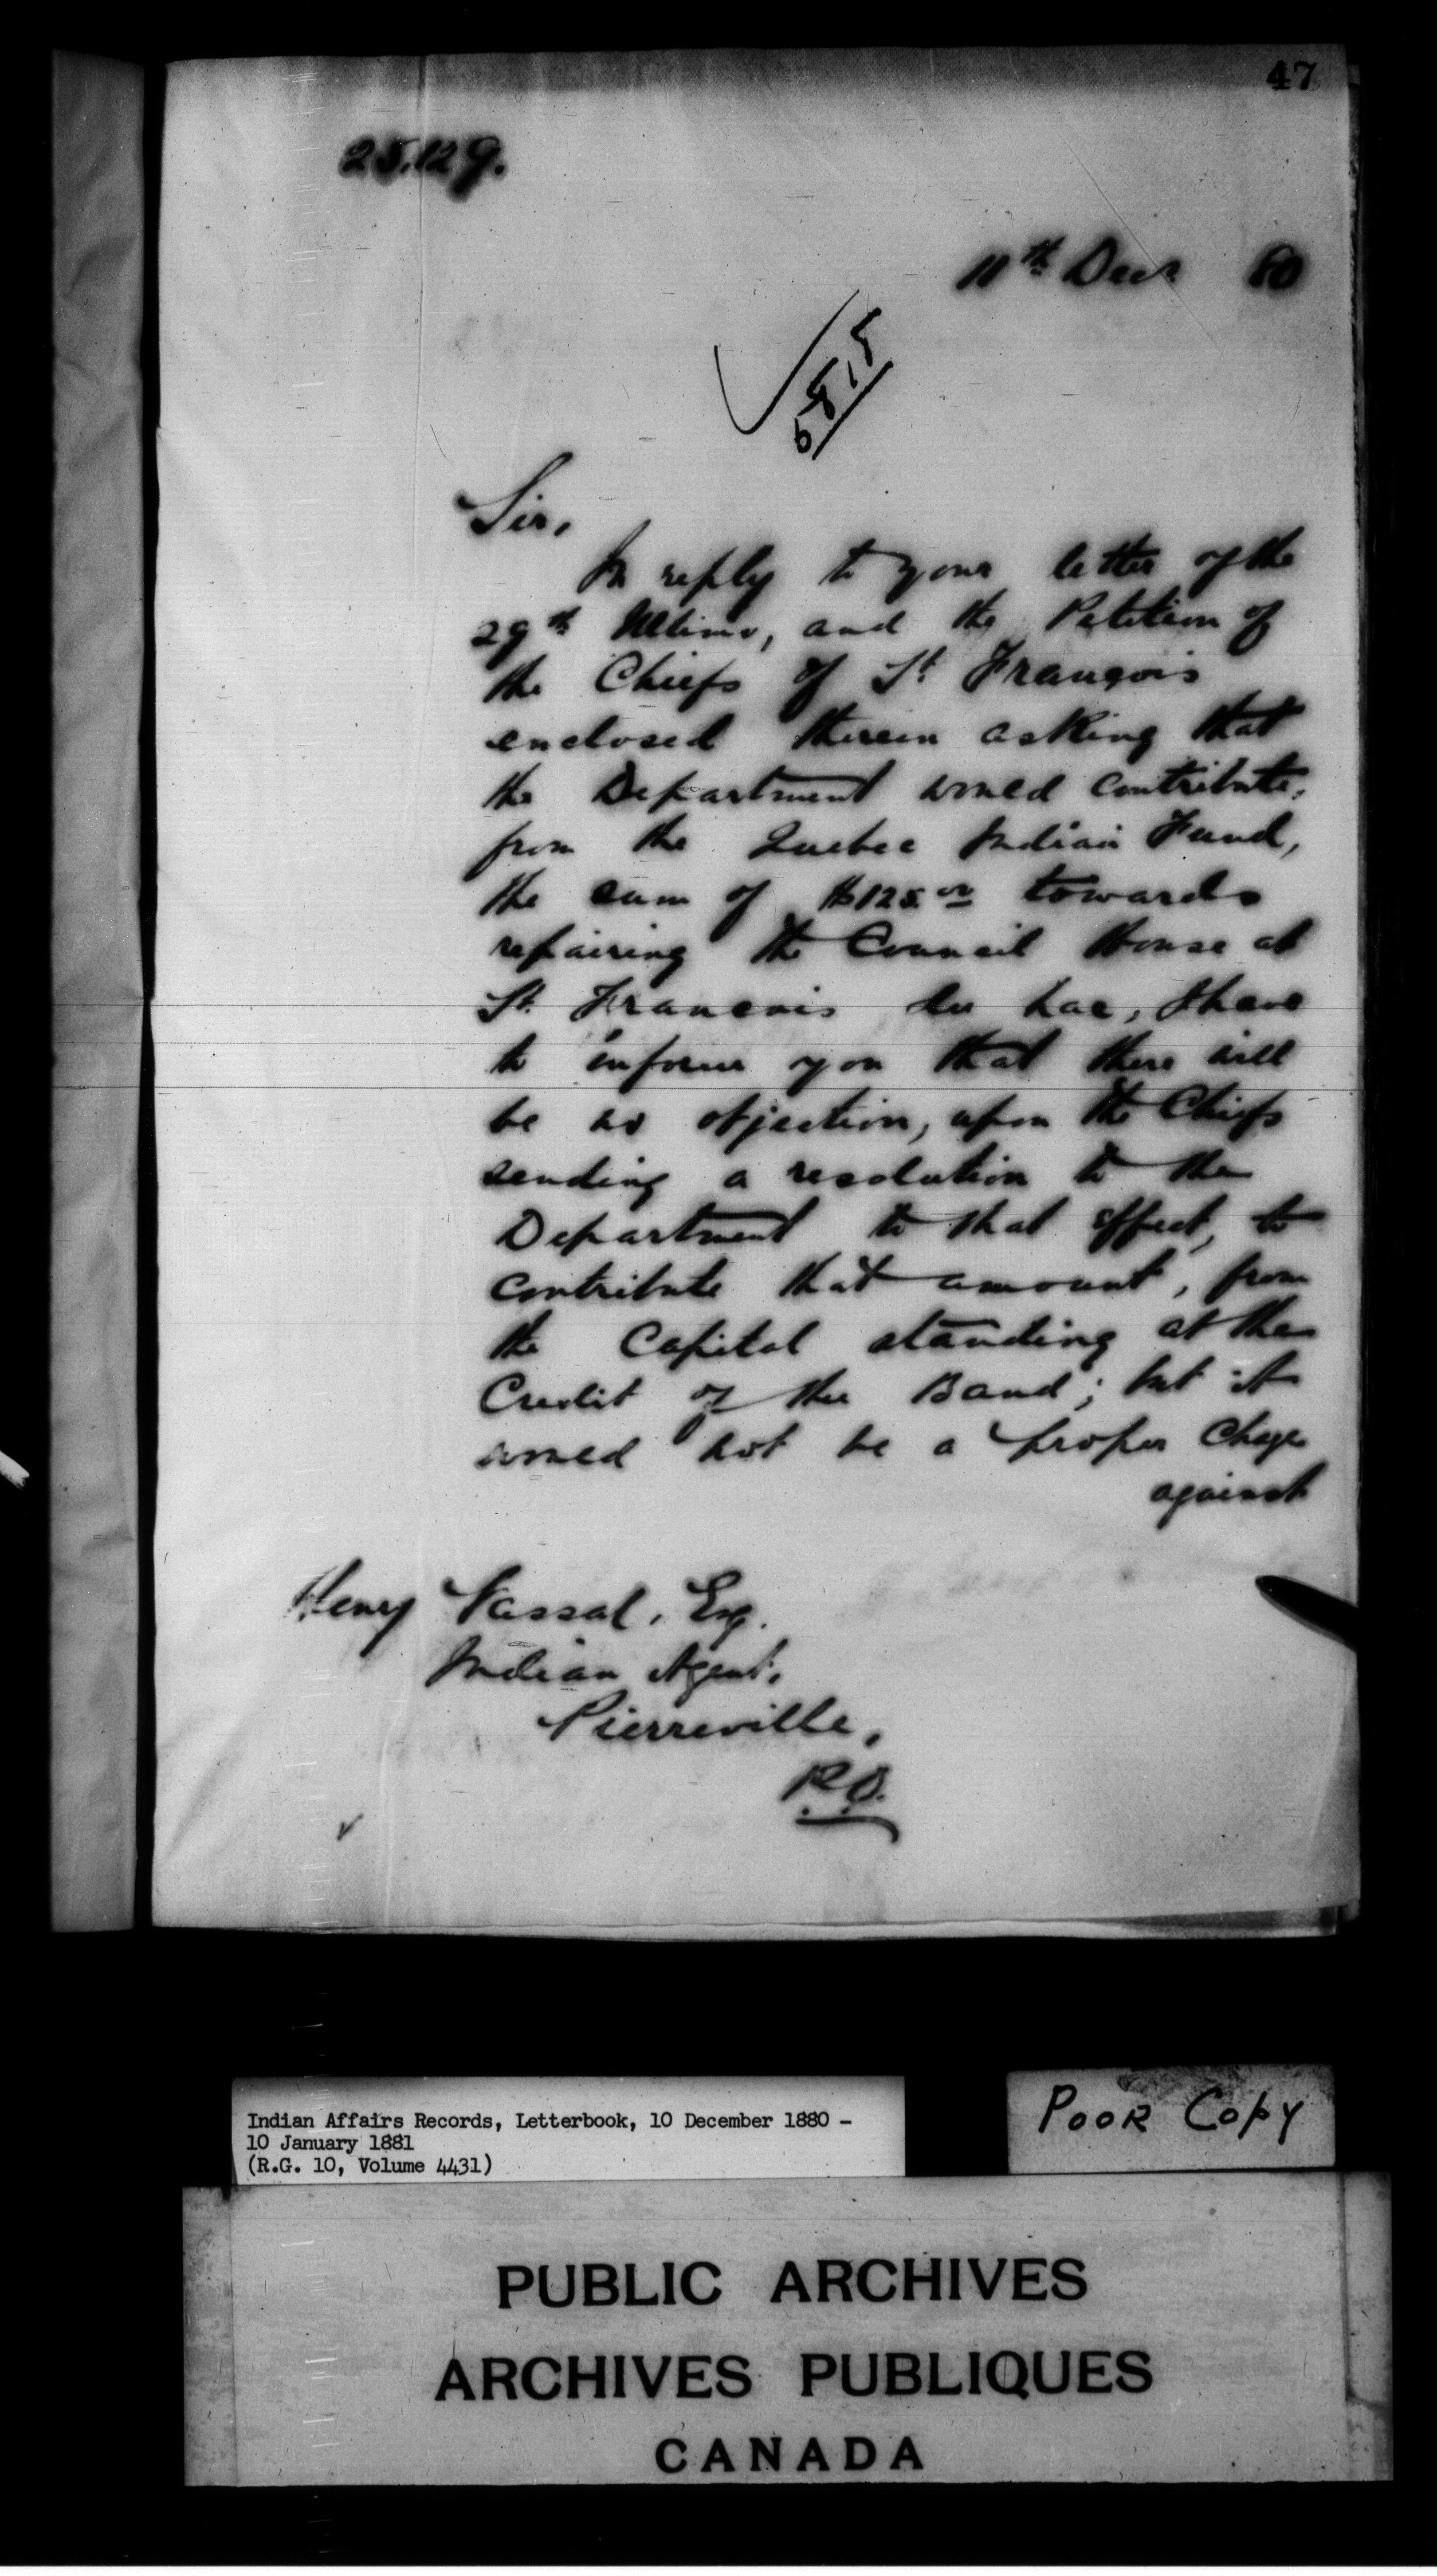 47
25.129.
11th Decr 80
5815
Sir,
In reply to your letter of the
29th Ultimo, and the Petition of
the Chiefs of St François
enclosed therein asking that
the Department would contribute,
from the Quebec Indian Fund,
the sum of $125.00 towards
repairing the Council House at
St. Francois du Lac, I have
to inform you that there will
be no objection, upon the Chiefs
sending a resolution to the
Department to that effect, to
contribute that amount, from
the Capital standing at the
Credit of the Band; but it
would not be a proper Charge
against
Henry Vassal, Esq.
Indian Agent,
Pierreville,
P.Q.
Indian Affairs Records, Letterbook, 10 December 1880 -
10 January 1881
(R.G. 10, Volume 4431)
Poor Copy
PUBLIC ARCHIVES
ARCHIVES PUBLIQUES
CANADA